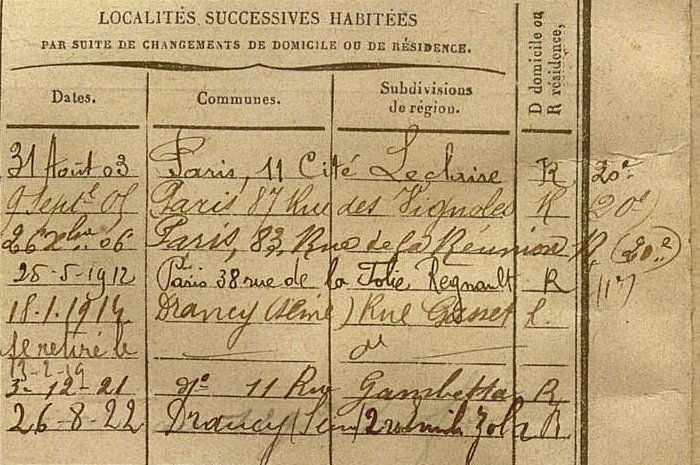 LOCALITÉS SUCCESSIVES HABITÉES
PAR SUITE DE CHANGEMENTS DE DOMICILE OU DE RÉSIDENCE.
D domicile ou
R résidence.
Dates. Communes. Subdivisions
de région.
31 Août 03 Paris, 11 Cité Leclaire R 20e
9 Septe 05 Paris 87 Rue des Vignoles R (20e)
26 Xbre 06 Paris, 83, Rue de la Réunion R. (20e)
25-5-1912 Paris 38 rue de la Folie Regnault R (11e)
18.1.1914 Drancy (Seine) Rue R.
se retire le
12-2-19 do
3-12-21 do 11 Rue Gambetta R
26-8-22 Drancy (Seine) 2 r Zola R